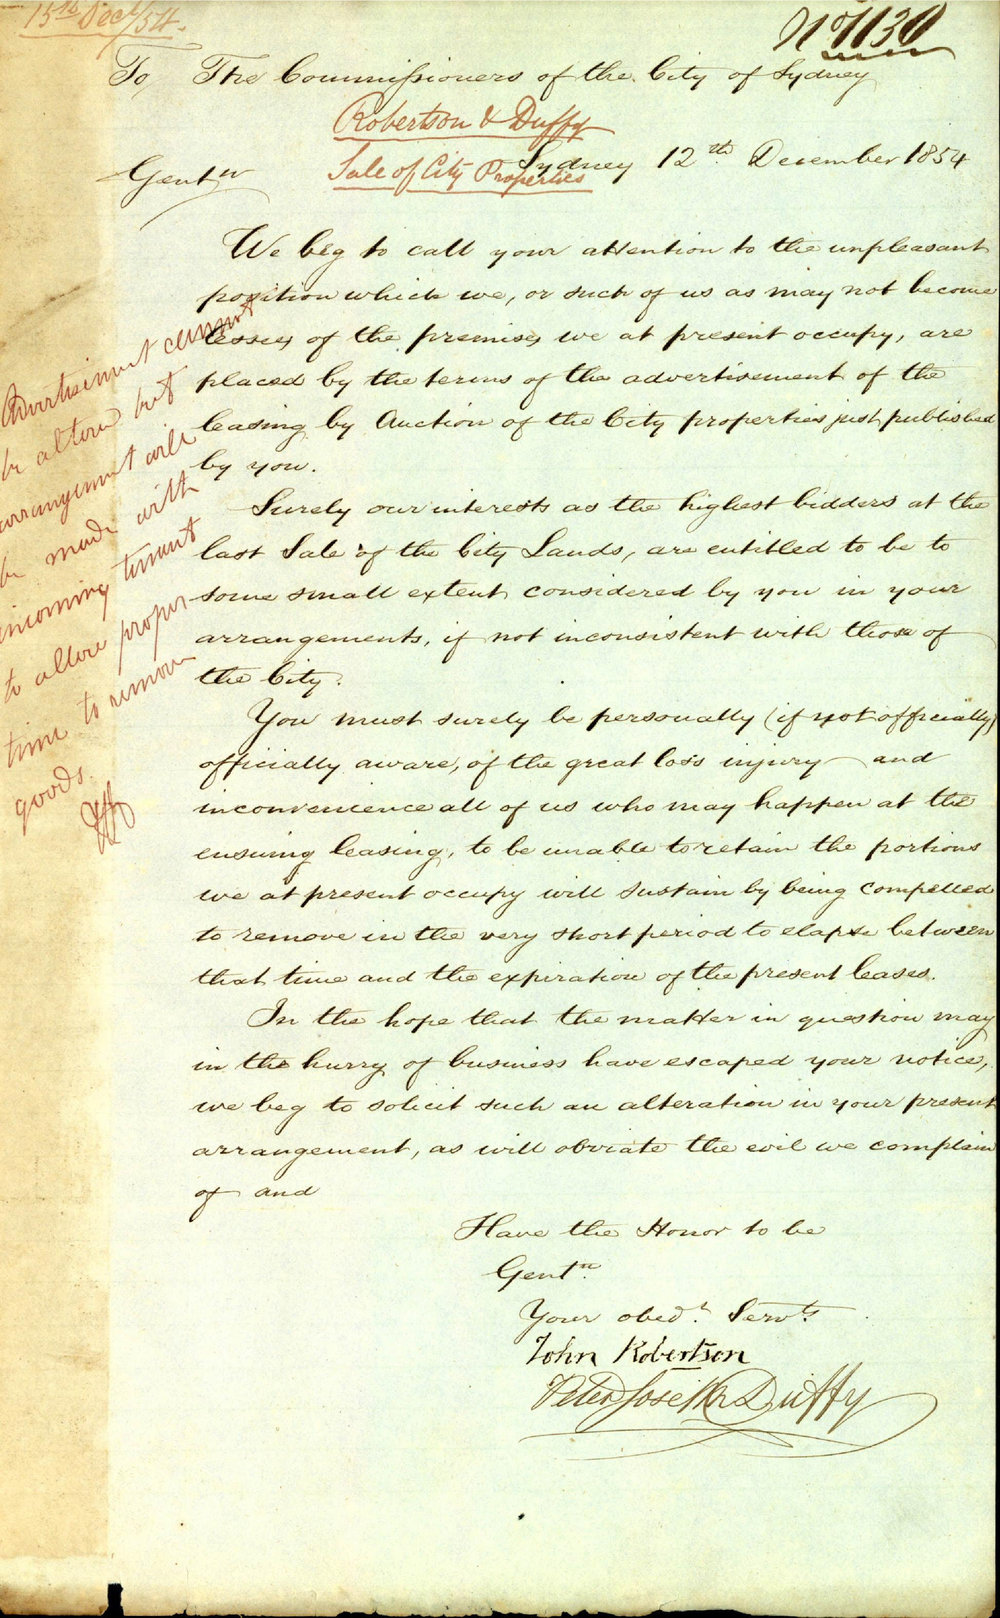 15th Dec/54.
No 1130
To The Commissioners of the City of Sydney
Robertson & Duffy
Sydney 12th December 1854
Sale of City Properties
Gentn
We beg to call your attention to the unpleasant
position which we, or such of us as may not become
lessees of the premises we at present occupy, are
placed by the terms of the advertisement of the
leasing by Auction of the City properties just published
by you.
Surely our interests as the highest bidders at the
last Sale of the City Lands, are entitled to be to
some small extent considered by you in your
arrangements, if not inconsistent with those of
the City.
You must surely be personally (if not officially)
officially aware, of the great loss injury and
inconvenience all of us who may happen at the
ensuing leasing, to be unable to retain the portions
we at present occupy will sustain by being compelled
to remove in the very short period to elapse between
that time and the expiration of the present leases.
In the hope that the matter in question may
in the hurry of business have escaped your notice,
we beg to solicit such an alteration in your present
arrangement, as will obviate the evil we complain
of and
Have the Honor to be
Gentn
Your obedt. Servts
John Robertson
Peter Joseph Duffy
Advertisement cannot
be altered but
arrangement will
be made with
incoming tenant
to allow proper
time to remove
goods.